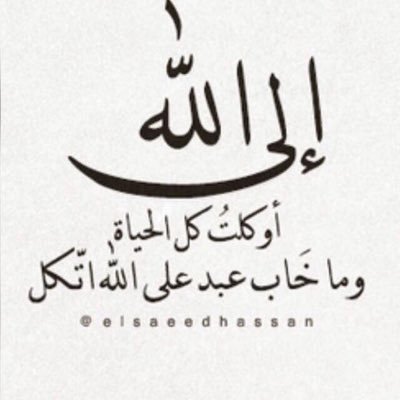 إلى الله
أوكلتُ كل الحياة
وما خَاب عبد على الله اتّكل
@elsaeedhassan